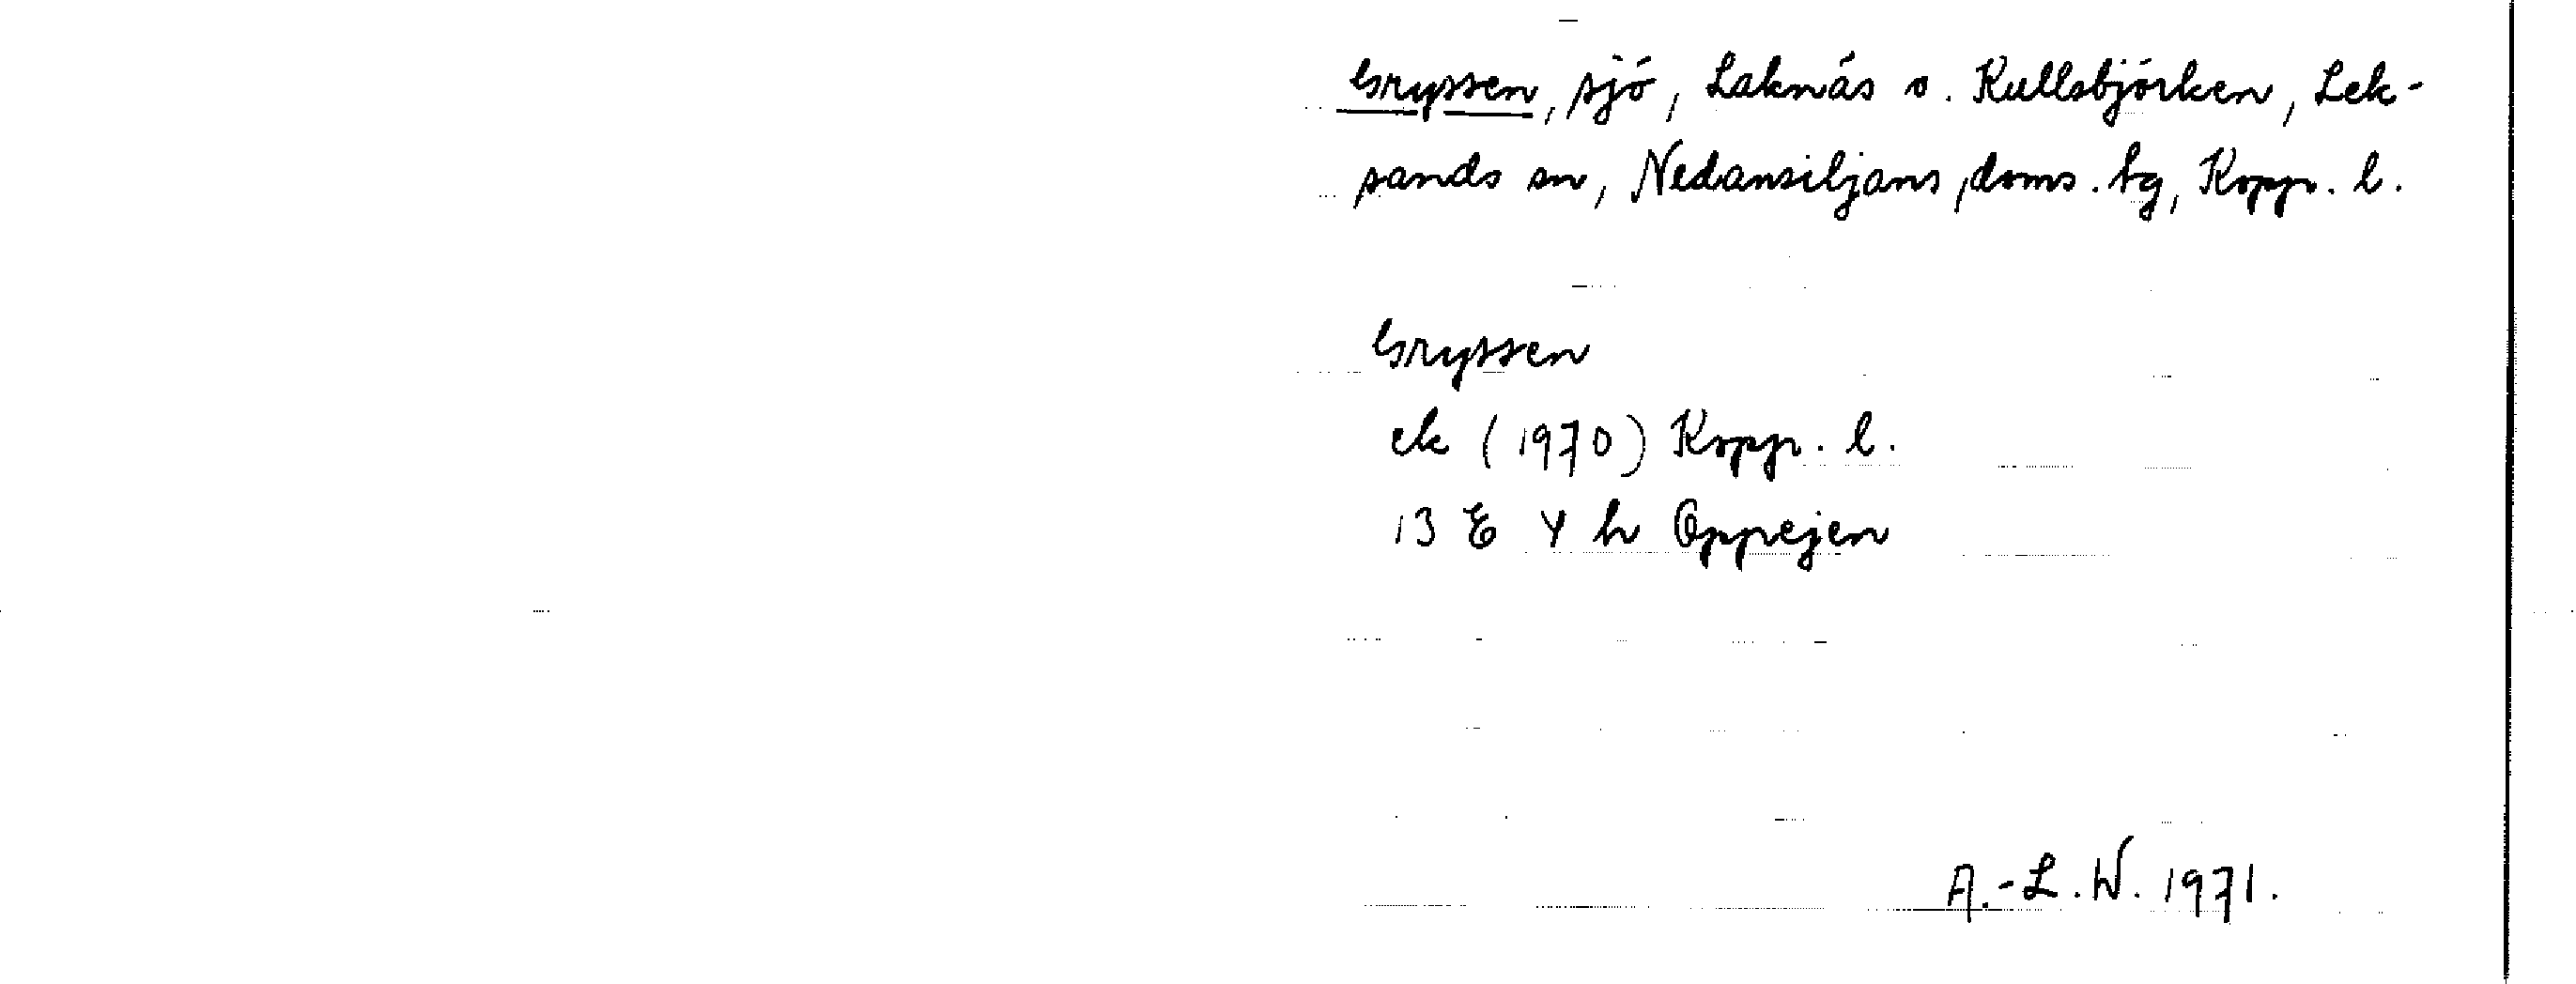 Gryssen, sjö, Laknäs o. Kullsbjörken, Lek-
sands sn, Nedansiljans doms. tg, Kopp. l.
Gryssen
ek (1970) Kopp. l.
13 E 4 h Oppejen
A.-L.W. 1971.